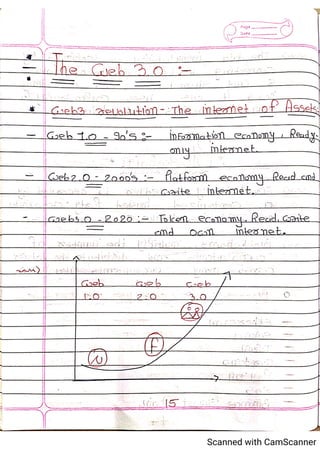 Page
Date
The Web 3.0 :-
Web3 revolution - The internet of Assets
- Web 1.0 - 90's :- information economy, Ready
only internet.
- Web 2.0 - 2000's :- Platform economy Read and
Write internet.
- Web3.0 - 2020 :- Token economy. Read, Write
and Own internet.
Web Web Web
1.0 2.0 3.0
f
N
15
Scanned with CamScanner